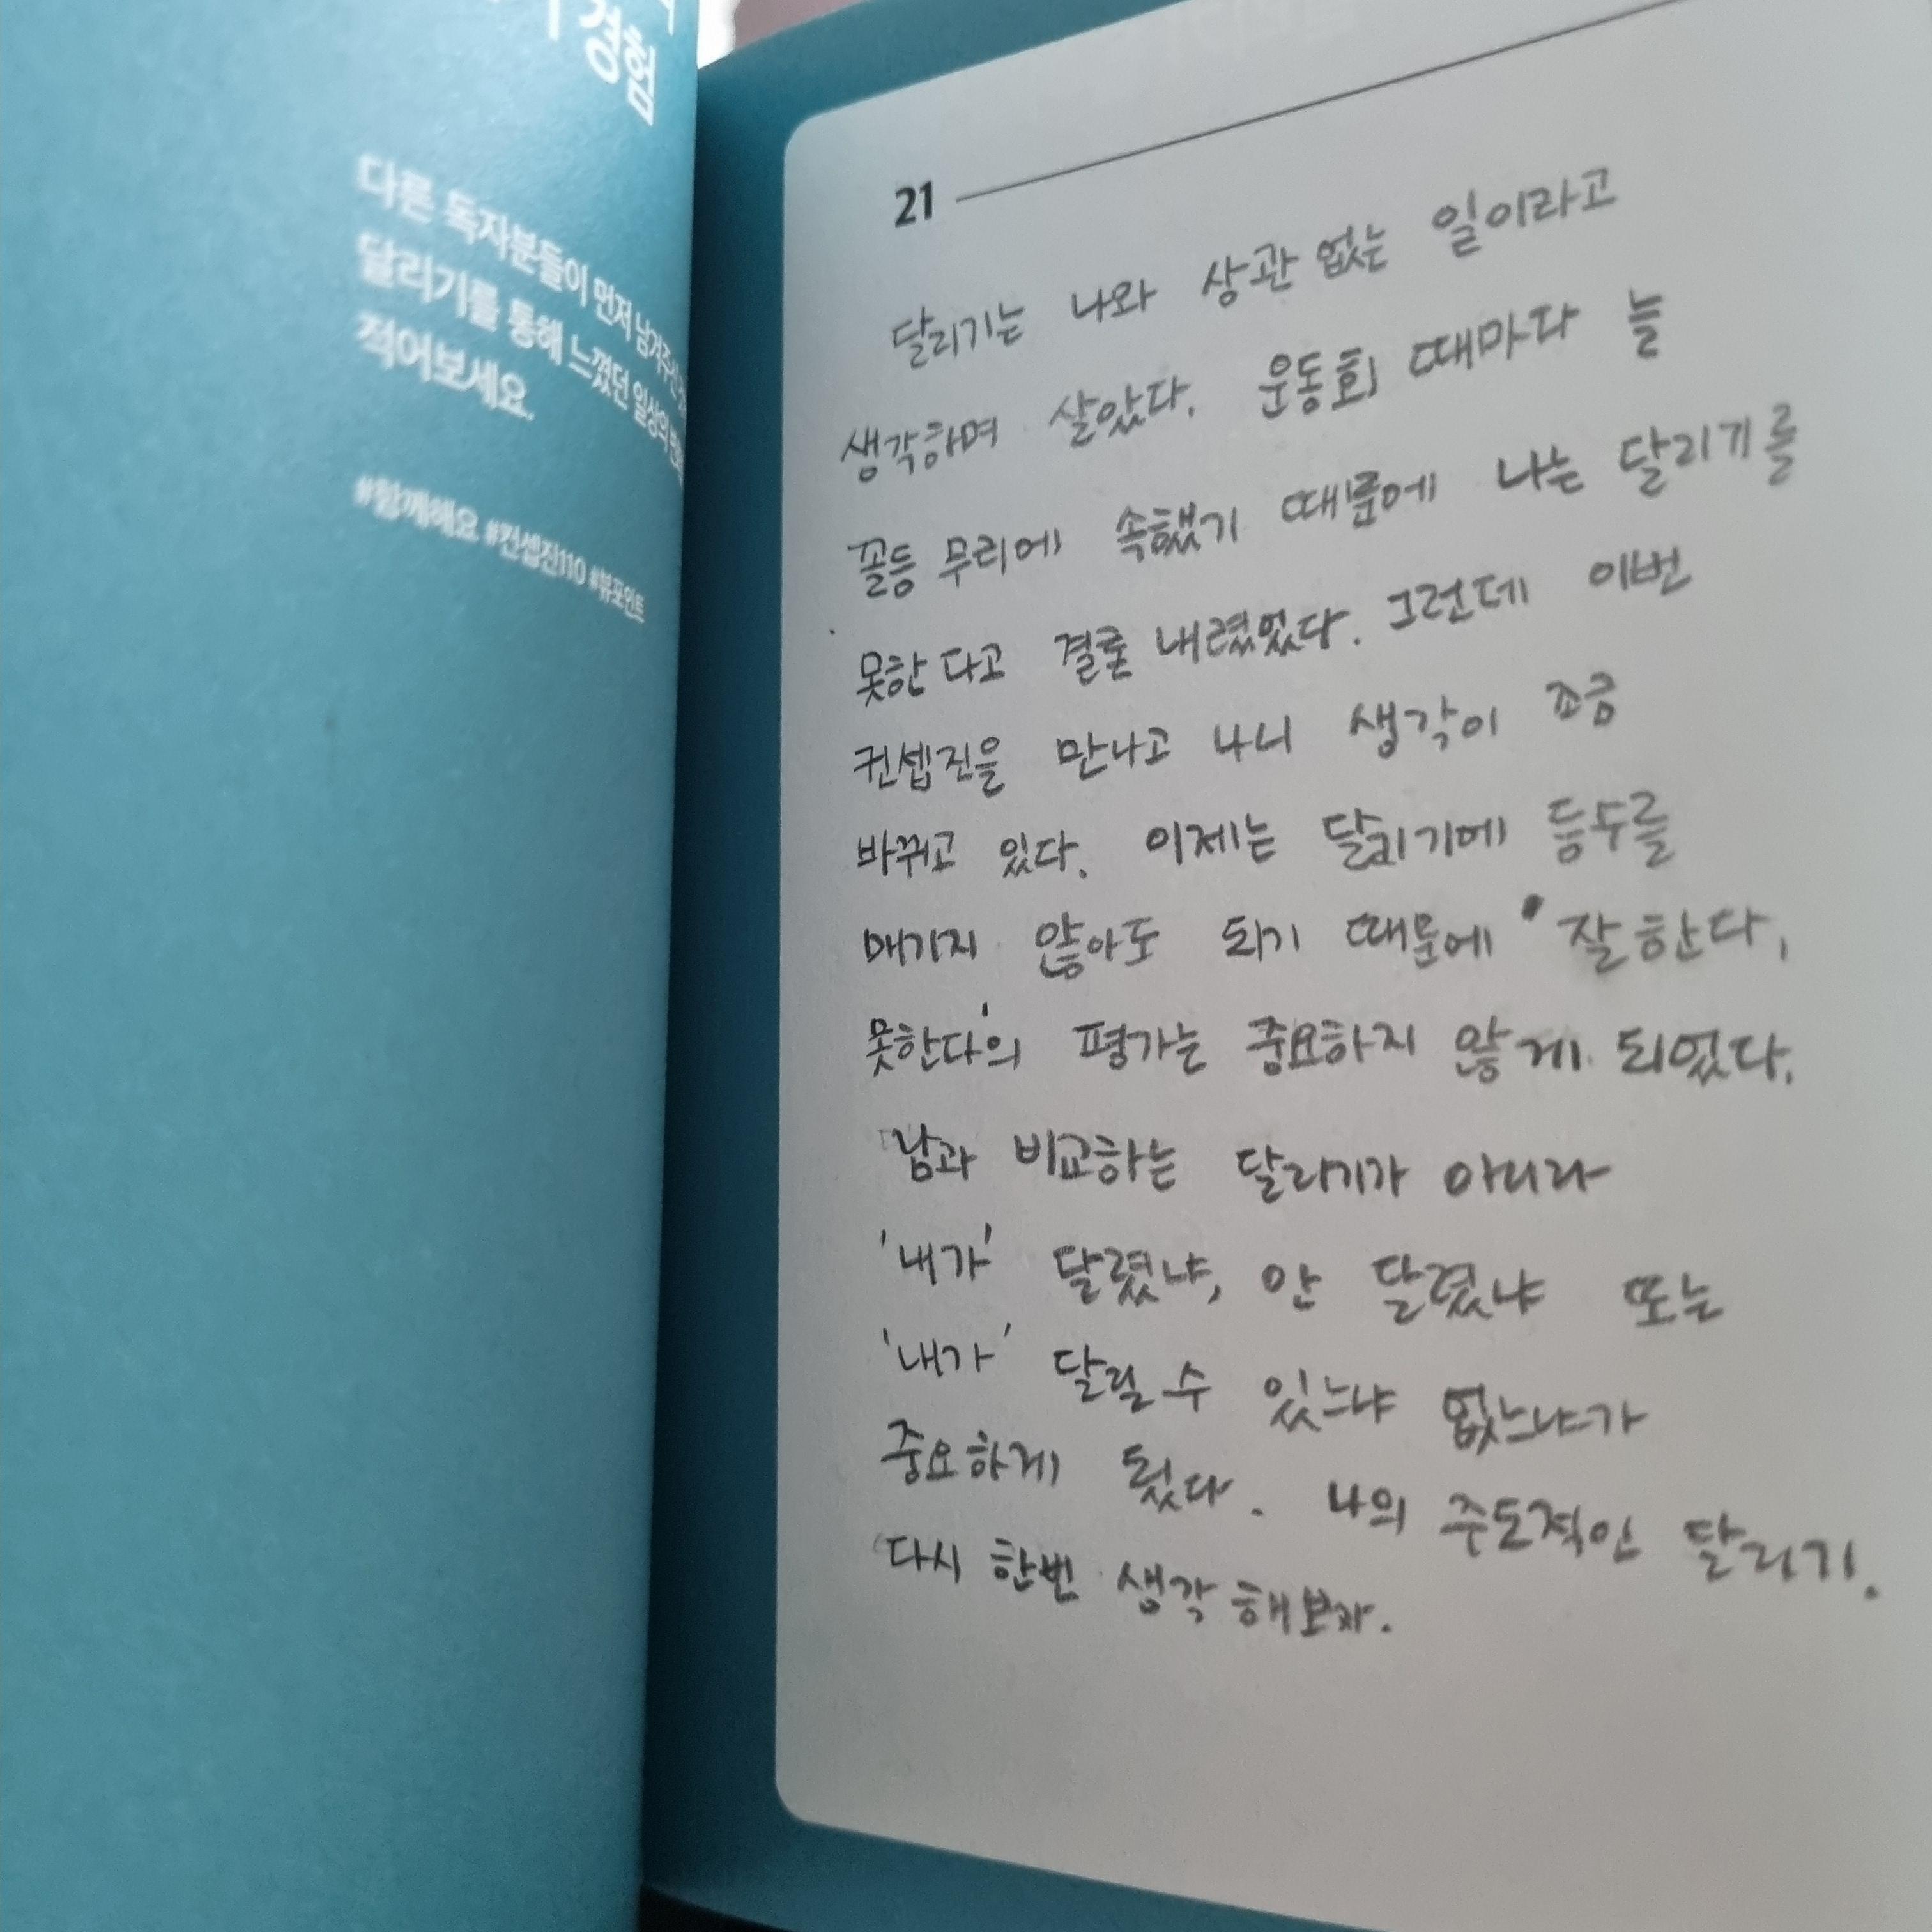 경험
다른 독자분들이 먼저 남겨주신
달리기를 통해 느꼈던 일상의
적어보세요.
#함께해요 #컨셉진110 #뷰포인트
21
달리기는 나와 상관없는 일이라고
생각하며 살았다. 운동회 때마다 늘
꼴등 무리에 속했기 때문에 나는 달리기를
못한다고 결론 내렸었다. 그런데 이번
컨셉진을 만나고 나니 생각이 조금
바뀌고 있다. 이제는 달리기에 등수를
매기지 않아도 되기 때문에 '잘한다,
못한다'의 평가는 중요하지 않게 되었다.
남과 비교하는 달리기가 아니라
'내가' 달렸냐, 안 달렸냐 또는
'내가' 달릴 수 있느냐 없느냐가
중요하게 됐다. 나의 주도적인 달리기.
다시 한번 생각해보자.